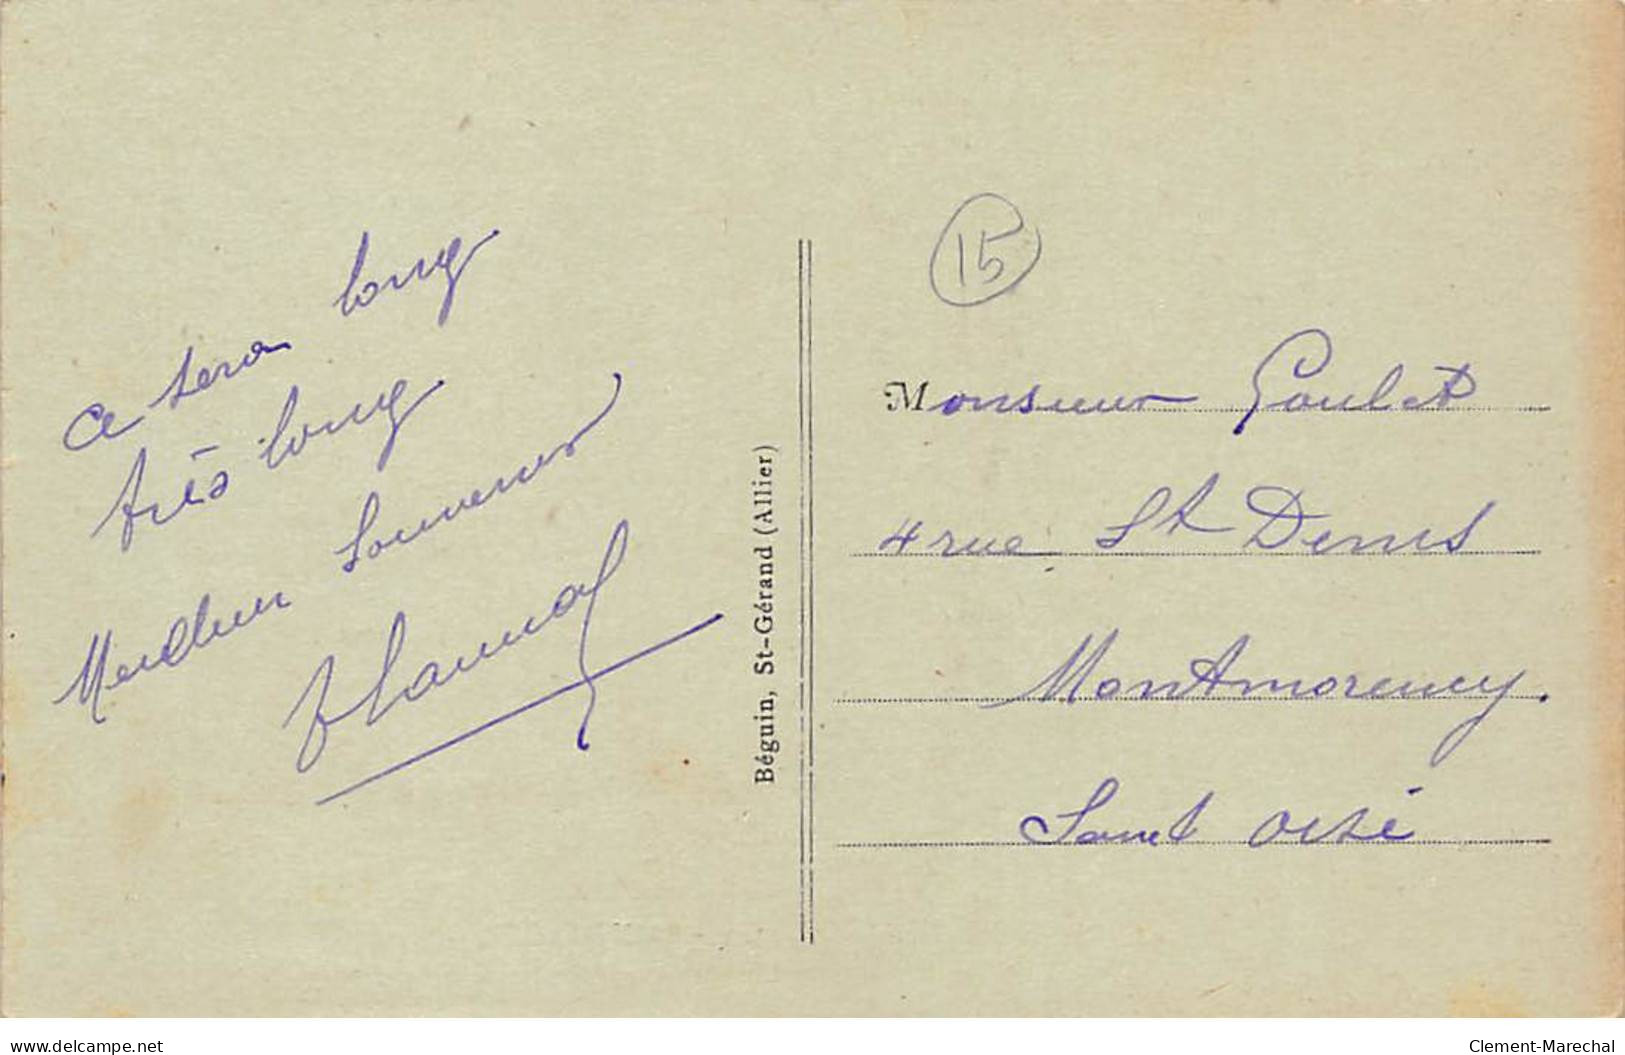 ce sera long
très long
Meilleur Souvenir
Béguin, St-Gérand (Allier)
15
Monsieur Goulet
4 rue St Denis
Montmorency.
Seine et Oise
delcampe.net
Clement-Marechal